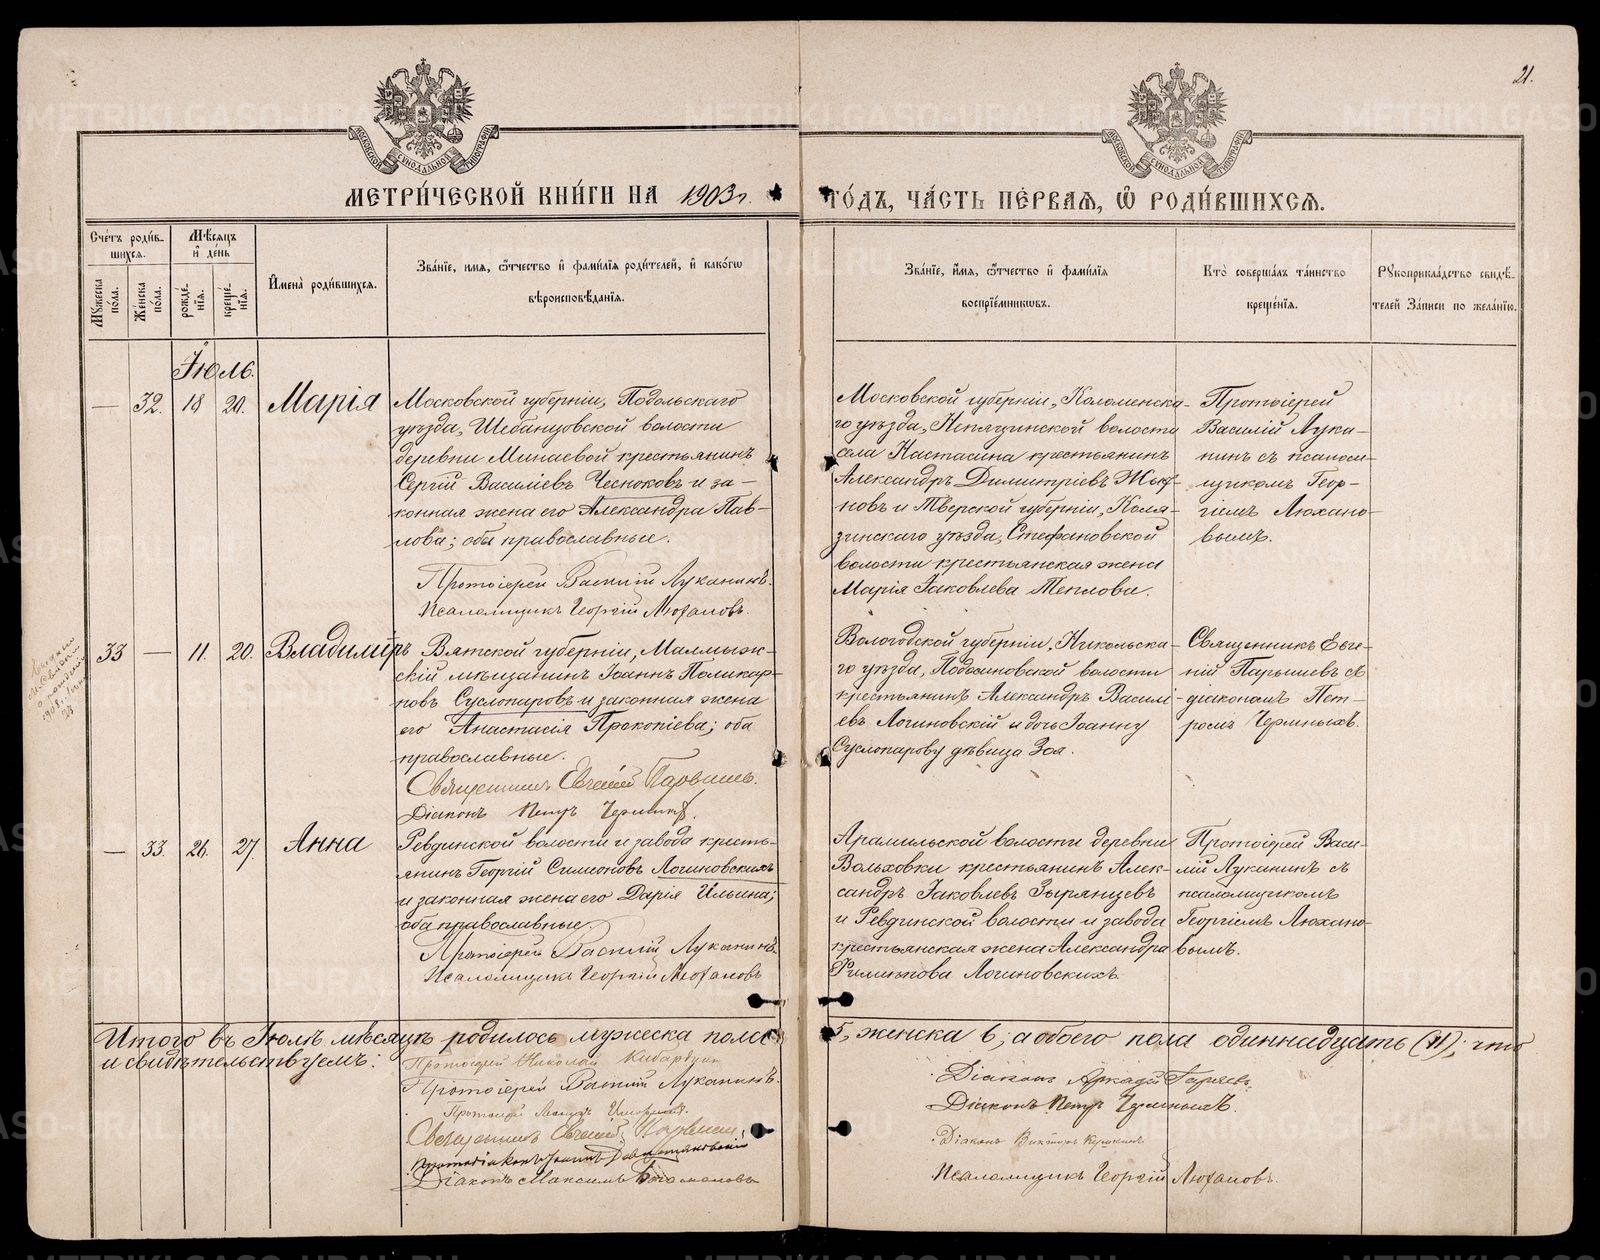 21.
МОСКОВСКОЙ СѴНОДАЛЬНОЙ ТИПОГРАФІИ
МОСКОВСКОЙ СѴНОДАЛЬНОЙ ТИПОГРАФІИ
МЕТРИ́ЧЕСКОЙ КНИ́ГИ НА 1903 г.
ГО́ДЪ, ЧА́СТЬ ПЕ́РВАѦ, Ѡ҆ РОДИ́ВШИХСѦ.
Сче́тъ роди́в-
шихсѧ.
Мꙋжеска
пола.
Же́нска
пола.
Мѣ́сѧцъ
и҆ де́нь
рожде́-
нїѧ.
креще́-
нїѧ.
И҆мена̀ роди́вшихсѧ.
Зва́нїе, и҆мѧ, ѻ҆́тчество и҆ фами́лїѧ роди́телей, и҆ како́гѡ
вѣроисповѣ́данїѧ.
Зва́нїе, и҆́мѧ, ѻ҆́тчество и҆ фами́лїѧ
воспрїе́мникѡвъ.
Кто̀ соверша́лъ та́инство
креще́нїѧ.
Рꙋкоприкла́дство свидѣ́-
телей За́писи по жела́нїю.
Іюль.
— 32. 18 20. Марія
Московской губерніи, Подольскаго
уѣзда, Шебанцовской волости
деревни Минаевой крестьянинъ
Сергій Василіевъ Чесноковъ и за-
конная жена его Александра Пав-
лова; оба православные.
Протоіерей Василій Луканинъ.
Псаломщикъ Георгій Люхановъ.
Московской губерніи, Коломенска-
го уѣзда, Непецинской волости
села Настасина крестьянинъ
Александръ Димитріевъ
новъ и Тверской губерніи, Коля-
зинскаго уѣзда, Стефановской
волости крестьянская жена
Марія Іаковлева Теплова.
Протоіерей
Василій Лука-
нинъ съ псалом-
щикомъ Геор-
гіемъ Люхано-
вымъ.
33 — 11. 20. Владиміръ
1908
Вятской губерніи, Малмыж-
скій мѣщанинъ Іоаннъ Поликар-
повъ Суслопаровъ и законная жена
его Анастасія Прокопіева; оба
православные.
Священникъ Евгеній
Діаконъ Петръ
Вологодской губерніи, Никольска-
го уѣзда, Подосиновской волости
крестьянинъ Александръ Васильі-
евъ Логиновскій и дочь Іоанну
Суслопарову дѣвица Зоя.
Священникъ Евге-
ній съ
діакономъ Пет-
ромъ Черминыхъ.
— 33. 26. 27. Анна
Ревдинской волости и завода кресть-
янинъ Георгій Симоновъ Логиновскихъ
и законная жена его Дарія Ильина;
оба православные.
Протоіерей Василій Луканинъ.
Псаломщикъ Георгій Люхановъ
Арамильской волости деревни
Вольховки крестьянинъ Алек-
сандръ Іаковлевъ Зырянцевъ
и Ревдинской волости и завода
крестьянская жена Александра
Логиновскихъ.
Протоіерей Васи-
лій Луканинъ съ
псаломщикомъ
Георгіемъ Люхано-
вымъ.
Итого въ Іюлѣ мѣсяцѣ родилось мужеска пола 5, женска 6, а обоего пола одиннадцать (11); что
и свидѣтельствуемъ:
Протоіерей Николай
Протоіерей Василій Луканинъ.
Протоіерей
Священникъ Евгеній
Протодіаконъ Іоаннъ
Діаконъ Максимъ Богомоловъ
Діаконъ Аркадій Гаряевъ.
Діаконъ Петръ
Діаконъ Викторъ
Псаломщикъ Георгій Люхановъ.
METRIKI.GASO-URAL.RU